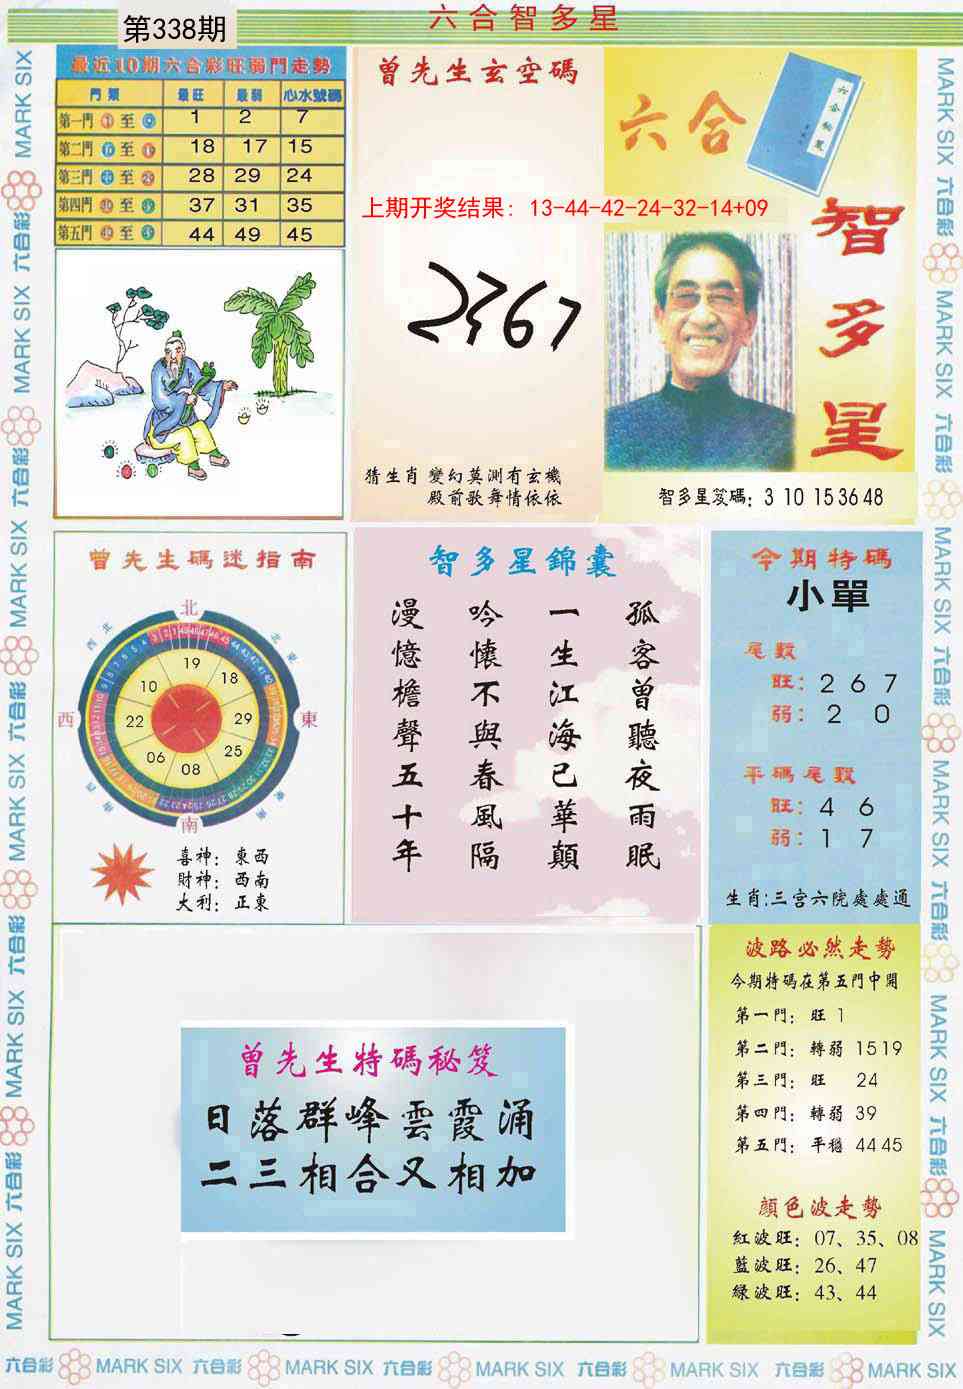 第338期
六合智多星
最近10期六合彩旺弱門走勢
門類 最旺 最弱 心水號碼
第一門 至 1 2 7
第二門 至 18 17 15
第三門 至 28 29 24
第四門 至 37 31 35
第五門 至 44 49 45
曾先生玄空碼
上期开奖结果: 13-44-42-24-32-14+09
2367
猜生肖 變幻莫測有玄機
殿前歌舞情依依
六合
智多星
智多星笈碼: 3 10 15 36 48
曾先生碼迷指南
北
西
東
南
19
18
29
25
08
06
22
10
喜神: 東西
財神: 西南
大利: 正東
智多星錦囊
孤客曾聽夜雨眠
一生江海已華顛
吟懷不與春風隔
漫憶檐聲五十年
今期特碼
小單
尾數
旺: 2 6 7
弱: 2 0
平碼尾數
旺: 4 6
弱: 1 7
生肖:三宫六院處處通
曾先生特碼秘笈
日落群峰雲霞涌
二三相合又相加
波路必然走勢
今期特碼在第五門中開
第一門: 旺 1
第二門: 轉弱 15 19
第三門: 旺 24
第四門: 轉弱 39
第五門: 平穩 44 45
顏色波走勢
紅波旺: 07、35、08
藍波旺: 26、47
綠波旺: 43、44
六合彩 MARK SIX 六合彩 MARK SIX 六合彩 MARK SIX 六合彩 MARK SIX